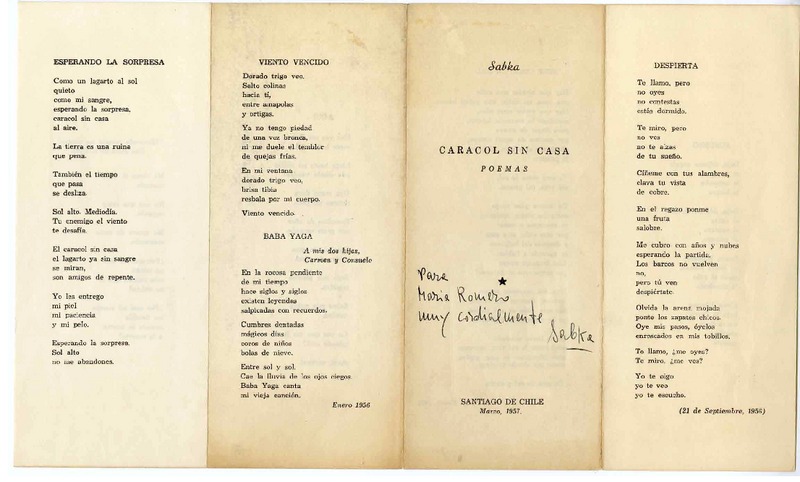 ESPERANDO LA SORPRESA
Como un lagarto al sol
quieto
como mi sangre,
esperando la sorpresa,
caracol sin casa
al aire.
La tierra es una ruina
que pena.
También el tiempo
que pasa
se desliza.
Sol alto. Mediodía.
Tu enemigo el viento
te desafía.
El caracol sin casa
el lagarto ya sin sangre
se miran,
son amigos de repente.
Yo les entrego
mi piel
mi paciencia
y mi pelo.
Esperando la sorpresa.
Sol alto
no me abandones.
VIENTO VENCIDO
Dorado trigo veo.
Salto colinas
hacia tí,
entre amapolas
y ortigas.
Ya no tengo piedad
de una vez bronca,
ni me duele el temblor
de quejas frías.
En mi ventana
dorado trigo veo,
brisa tibia
resbala por mi cuerpo.
Viento vencido.
BABA YAGA
A mis dos hijas,
Carmen y Consuelo
En la rocosa pendiente
de mi tiempo
hace siglos y siglos
existen leyendas
salpicadas con recuerdos.
Cumbres dentadas
mágicos días
coros de niños
bolas de nieve.
Entre sol y sol.
Cae la lluvia de los ojos ciegos.
Baba Yaga canta
mi vieja canción.
Enero 1956
Sabka
CARACOL SIN CASA
POEMAS
Para
Maria Romero
muy cordialmente
Sabka
SANTIAGO DE CHILE
Marzo, 1957.
DESPIERTA
Te llamo, pero
no oyes
no contestas
estás dormido.
Te miro, pero
no ves
no te alzas
de tu sueño.
Cíñeme con tus alambres,
clava tu vista
de cobre.
En el regazo ponme
una fruta
salobre.
Me cubro con años y nubes
esperando la partida.
Los barcos no vuelven
no,
pero tú ven
despiértate.
Olvida la arena mojada
ponte los zapatos chicos.
Oye mis pasos, óyelos
enroscados en mis tobillos.
Te llamo, ¿me oyes?
Te miro, ¿me ves?
Yo te oigo
yo te veo
yo te escucho.
(21 de Septiembre, 1956)